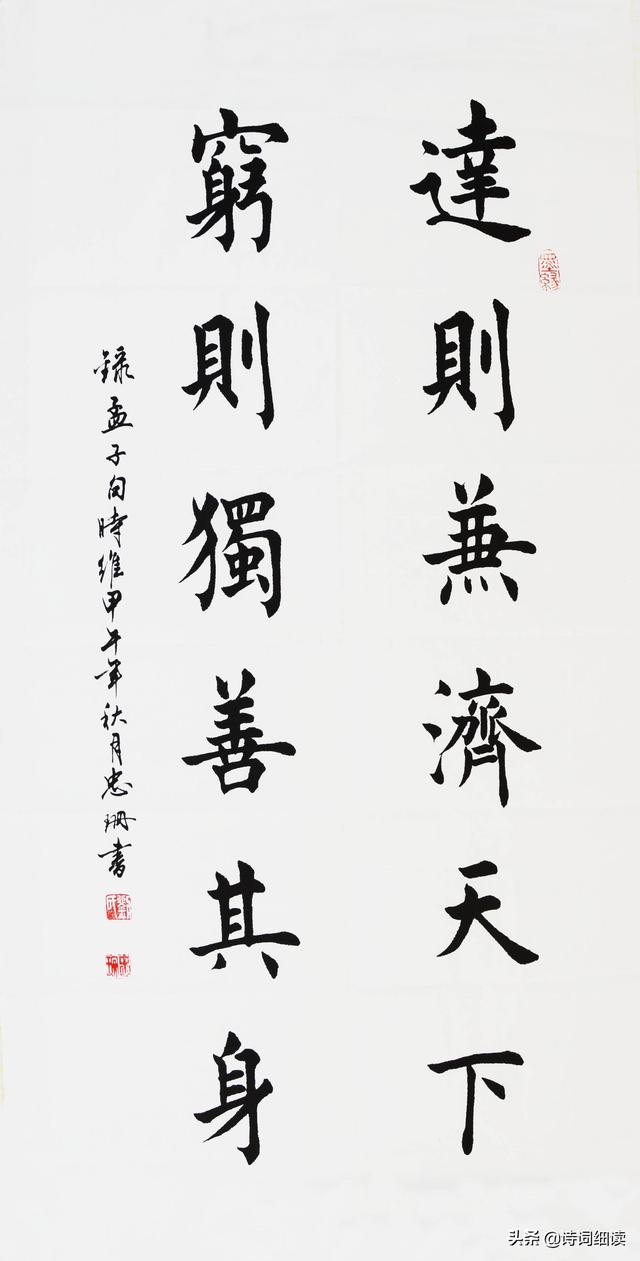 達則兼濟天下
窮則獨善其身
錄孟子句時維甲午年秋月忠珊書
头条 @诗词细读